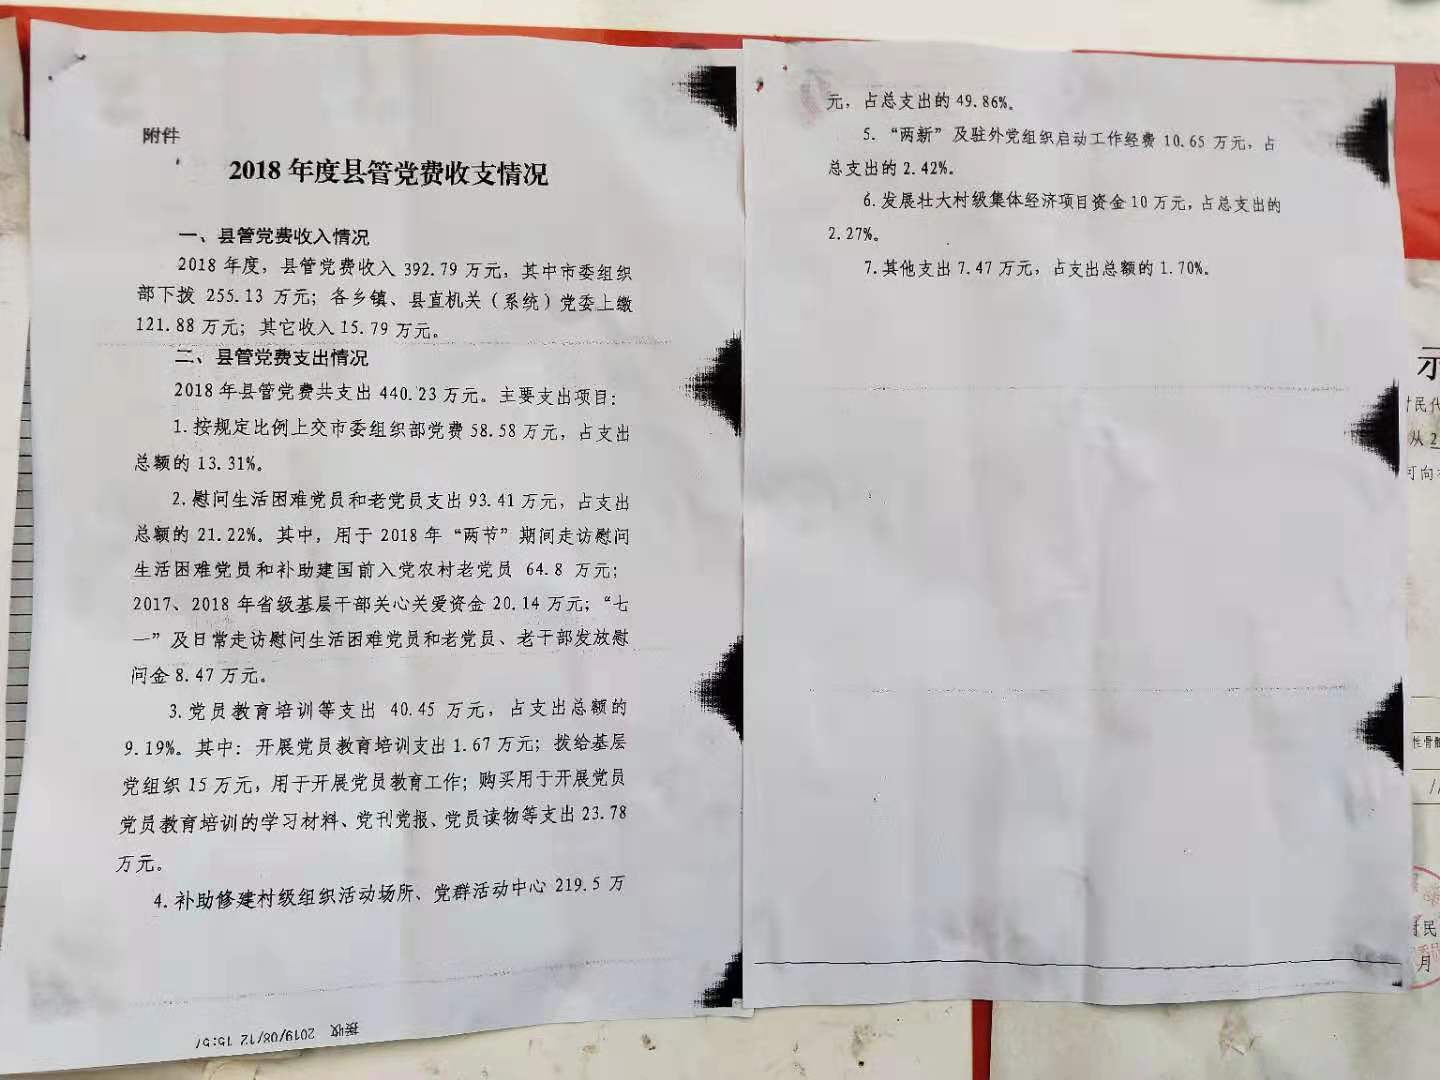 附件
2018 年度县管党费收支情况
一、县管党费收入情况
2018 年度，县管党费收入 392.79 万元，其中市委组织
部下拨 255.13 万元；各乡镇、县直机关（系统）党委上缴
121.88 万元；其它收入 15.79 万元。
二、县管党费支出情况
2018 年县管党费共支出 440.23 万元。主要支出项目：
1. 按规定比例上交市委组织部党费 58.58 万元，占支出
总额的 13.31%。
2. 慰问生活困难党员和老党员支出 93.41 万元，占支出
总额的 21.22%。其中，用于 2018 年“两节”期间走访慰问
生活困难党员和补助建国前入党农村老党员 64.8 万元；
2017、2018 年省级基层干部关心关爱资金 20.14 万元；“七
一”及日常走访慰问生活困难党员和老党员、老干部发放慰
问金 8.47 万元。
3. 党员教育培训等支出 40.45 万元，占支出总额的
9.19%。其中：开展党员教育培训支出 1.67 万元；拨给基层
党组织 15 万元，用于开展党员教育工作；购买用于开展党员
党员教育培训的学习材料、党刊党报、党员读物等支出 23.78
万元。
4. 补助修建村级组织活动场所、党群活动中心 219.5 万
接收 2019/08/12 15:57
元，占总支出的 49.86%。
5. “两新”及驻外党组织启动工作经费 10.65 万元，占
总支出的 2.42%。
6. 发展壮大村级集体经济项目资金 10 万元，占总支出的
2.27%。
7. 其他支出 7.47 万元，占支出总额的 1.70%。
示
民代
从 2
可向
性骨髓
民
月